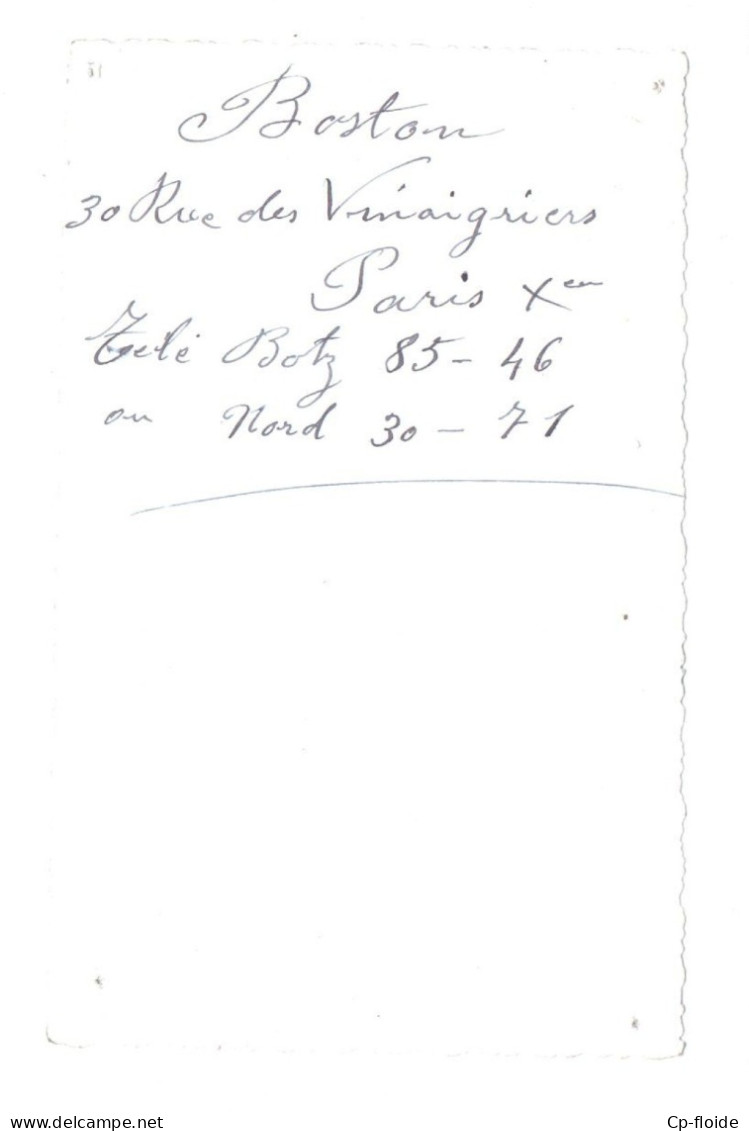 Boston
30 Rue des Vinaigriers
Paris Xem
Télé Botz 85 - 46
ou Nord 30 - 71
Cp-floide